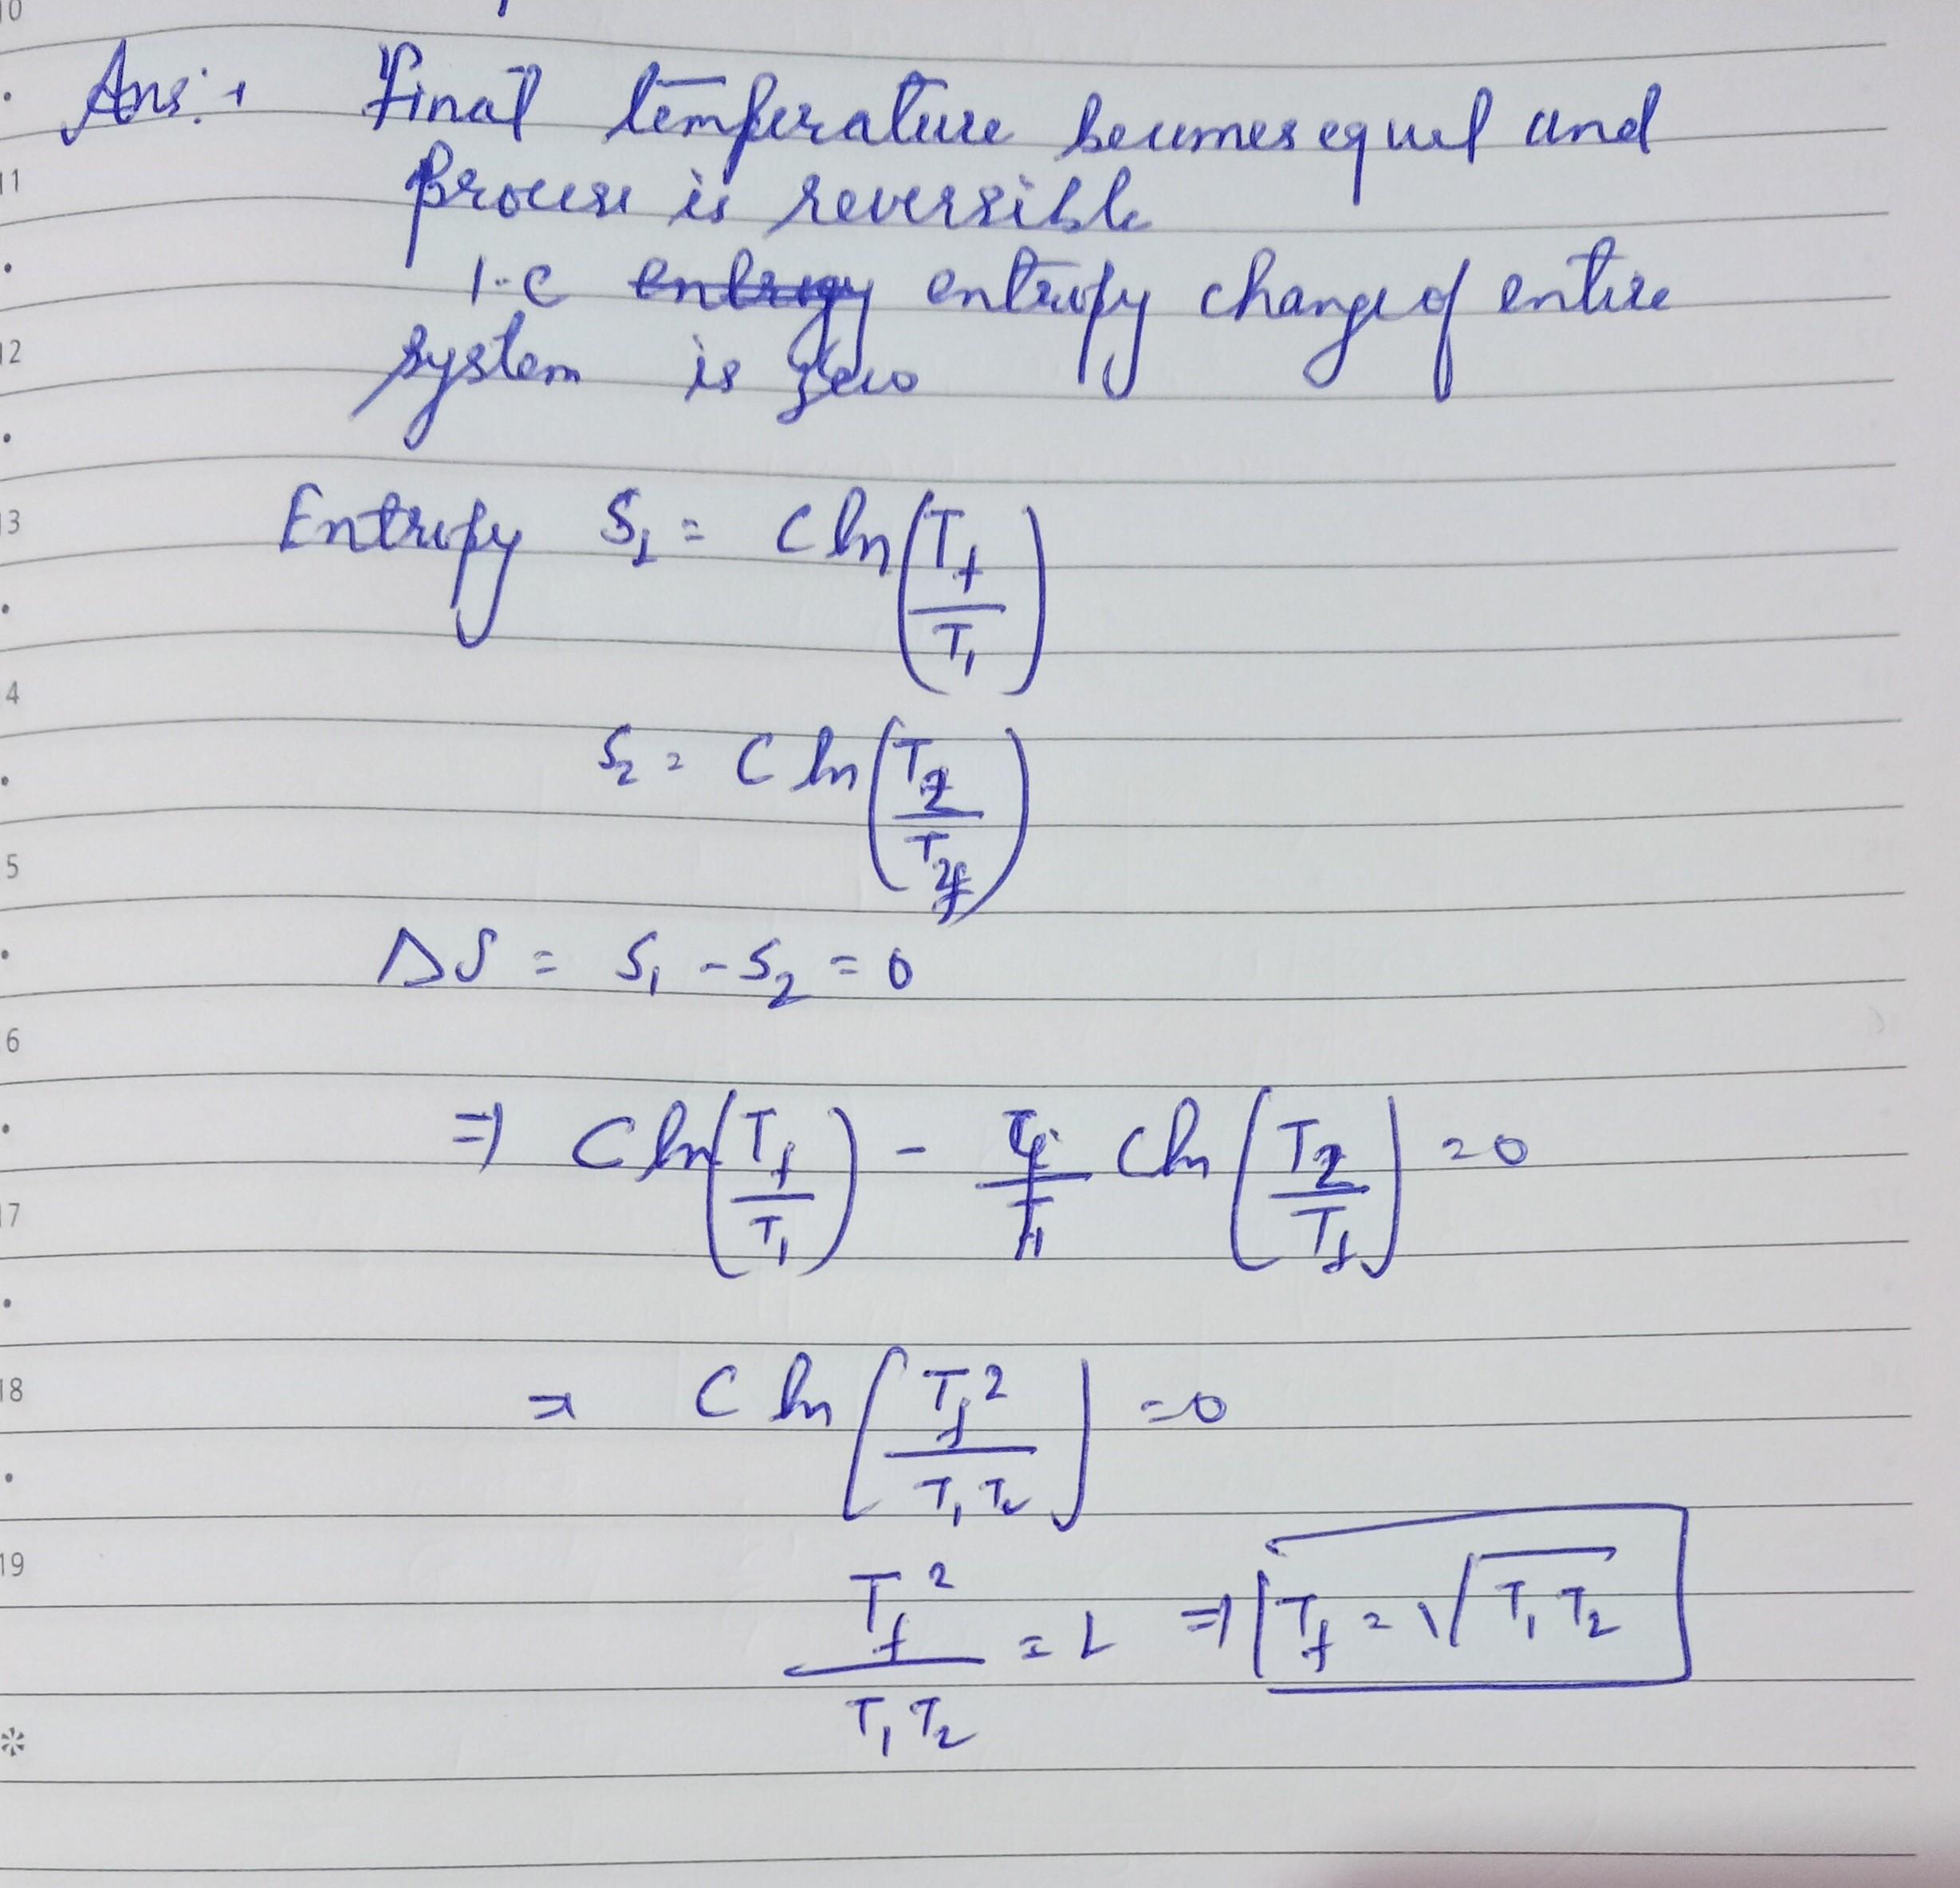 10
Ans:, Final temperature becomes equal and
11 process is reversible
i.e entropy change of entire
12 system is zero
13 Entropy S₁ = C ln(T_f/T₁)
14
S₂ = C ln(T₂/T_f)
15
ΔS = S₁ - S₂ = 0
16
⇒ C ln(T_f/T₁) - C ln(T₂/T_f) = 0
17
18 = C ln(T_f²/T₁T₂) = 0
19
T_f²/T₁T₂ = 1 ⇒ T_f = √T₁T₂
*